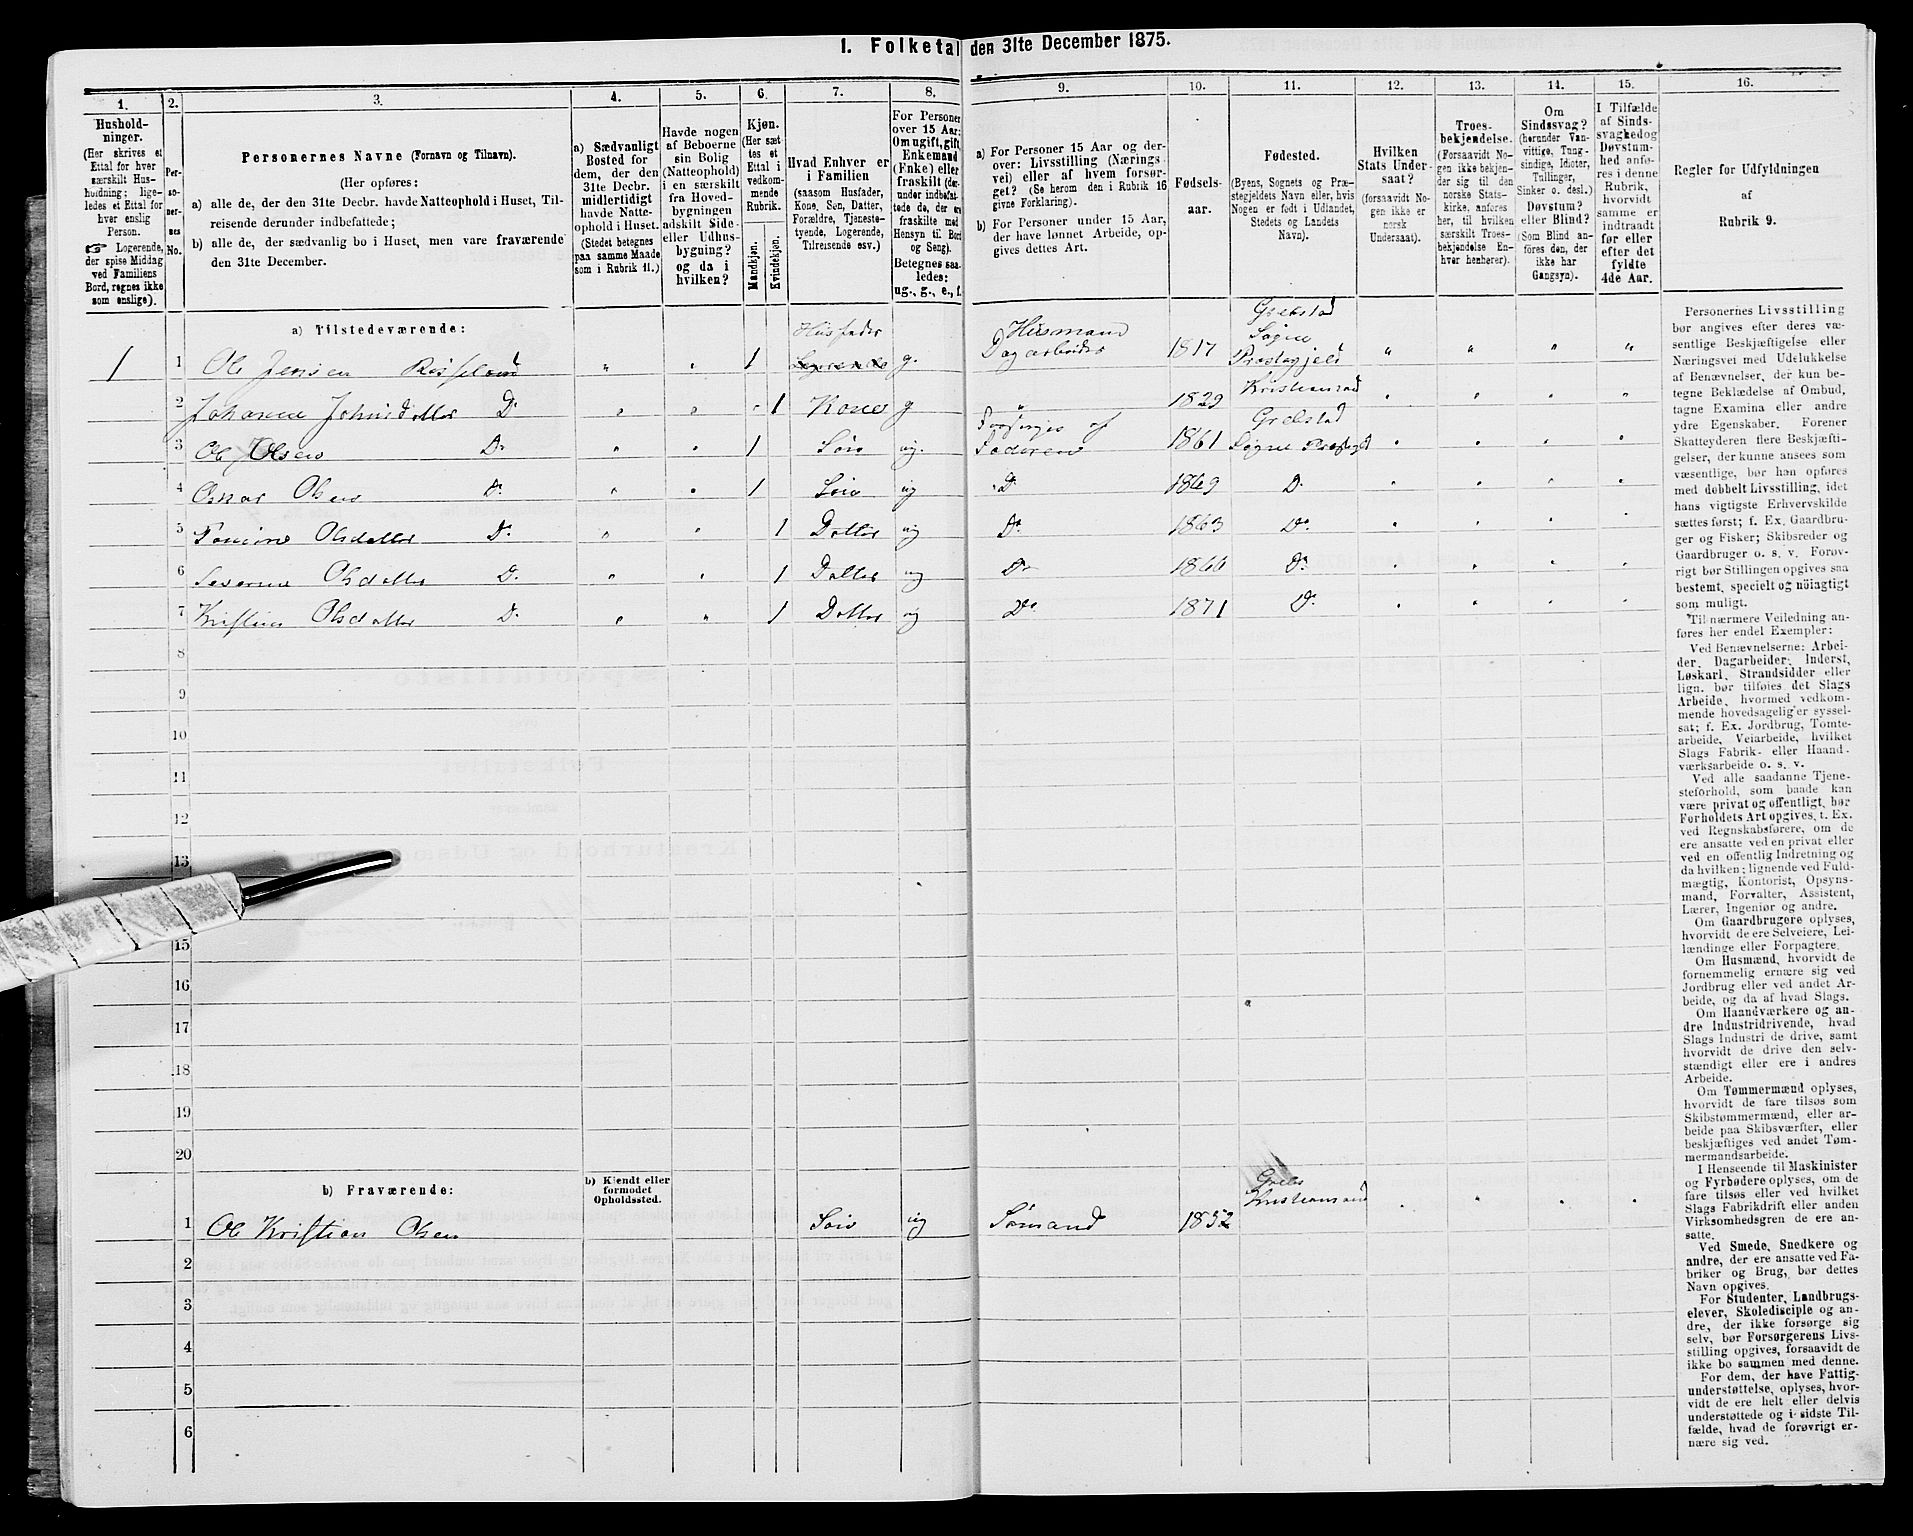 I. Folketal den 31te December 1875.
1.
Hushold-
ninger.
(Her skrives et
Ettal for hver
særskilt Hus-
holdning; lige-
ledes et Ettal for
hver enslig
Person.
☞ Logerende,
der spise Middag
ved Familiens
Bord, regnes ikke
som enslige).
2.
Per-
so-
ner-
nes
No.
3.
Personernes Navne (Fornavn og Tilnavn).
(Her opføres:
a) alle de, der den 31te Decbr. havde Natteophold i Huset, Til-
reisende derunder indbefattede;
b) alle de, der sædvanlig bo i Huset, men vare fraværende
den 31te December.
4.
a) Sædvanligt
Bosted for
dem, der den
31te Decbr.
midlertidigt
havde Natte-
ophold i Huset.
(Stedet betegnes
paa samme Maade
som i Rubrik 11.)
5.
Havde nogen
af Beboerne
sin Bolig
(Natteophold)
i en særskilt
fra Hoved-
bygningen
adskilt Side-
eller Udhus-
bygning?
og da i
hvilken?
6.
Kjøn.
(Her sæt-
tes et
Ettal i
vedkom-
mende
Rubrik.
Mandkjøn.
Kvindekjøn.
7.
Hvad Enhver er
i Familien
(saasom Husfader,
Kone, Søn, Datter,
Forældre, Tjeneste-
tyende, Logerende,
Tilreisende osv.)
8.
For Personer
over 15 Aar:
Om ugift, gift,
Enkemand
(Enke) eller
fraskilt (der-
under indbefat-
tede de, der ere
fraskilte med
Hensyn til Bord
og Seng).
Betegnes saa-
ledes:
ug., g., e., f.
9.
a) For Personer 15 Aar og der-
over: Livsstilling (Nærings-
vei) eller af hvem forsør-
get? (Se herom den i Rubrik 16
givne Forklaring).
b) For Personer under 15 Aar,
der have lønnet Arbeide, op-
gives dettes Art.
10.
Fødsels-
aar.
11.
Fødested.
(Byens, Sognets og Præ-
stegjeldets Navn eller, hvis
Nogen er født i Udlandet,
Stedets og Landets
Navn).
12.
Hvilken
Stats Under-
saat?
(forsaavidt No-
gen ikke er
norsk
Undersaat).
13.
Troes-
bekjendelse.
(Forsaavidt No-
gen ikke bekjen-
der sig til den
norske Stats-
kirke, anføres
her, til hvilken
særskilt Troes-
bekjendelse En-
hver henhører).
14.
Om
Sindssvag?
(herunder Van-
vittige, Tung-
sindige, Idioter,
Tullinger,
Sinker o. desl.)
Døvstum?
eller Blind?
(Som Blind an-
føres den, der
ikke har
Gangsyn).
15.
I Tilfælde
af Sinds-
svaghed og
Døvstum-
hed anfø-
res i denne
Rubrik,
hvorvidt
samme er
indtraadt
før eller
efter det
fyldte
4de Aar.
16.
Regler for Udfyldningen
af
Rubrik 9.
a) Tilstedeværende:
1 1 Ole Jensen Røsseland " " 1 Husfader Logerende g. Husmand Dagarbeider 1817 Grebstad Søgne Præstegjeld " " " "
2 Johanne Johnsdatter Do " " " 1 Kone g " 1829 Kristiansand " " " "
3 Ole Olsen Do " " 1 Søn ug. Forsørges af Faderen 1861 Grebstad Søgne Præstegjd " " " "
4 Osnar Olsen Do " " 1 Søn ug Do 1869 Do " " " "
5 Tomine Olsdatter Do " " 1 Datter ug Do 1863 Do " " " "
6 Severine Olsdatter Do " " 1 Datter ug Do 1866 Do " " " "
7 Kristine Olsdatter Do " " 1 Datter ug Do 1871 Do " " " "
8
9
10
11
12
13
15
16
17
18
19
20
b) Fraværende:
b) Kjendt eller
formodet
Opholdssted.
1 Ole Kristian Olsen Søn ug Sømand 1852 Kristiansand " " " "
2
3
4
5
6
Personernes Livsstilling
bør angives efter deres væ-
sentlige Beskjæftigelse eller
Næringsvei med Udelukkelse
af Benævnelser, der kun be-
tegne Beklædelse af Ombud,
tagne Examina eller andre
ydre Egenskaber. Forener
Skatteyderen flere Beskjæfti-
gelser, der kunne ansees som
væsentlige, bør han opføres
med dobbelt Livsstilling, idet
hans vigtigste Erhvervskilde
sættes først; f. Ex. Gaardbru-
ger og Fisker; Skibsreder og
Gaardbruger o. s. v. Forøv-
rigt bør Stillingen opgives saa
bestemt, specielt og nöiagtigt
som muligt.
Til nærmere Veiledning an-
føres her endel Exempler:
Ved Benævnelserne: Arbei-
der, Dagarbeider, Inderst,
Løskarl, Strandsidder eller
lign. bør tilføies det Slags
Arbeide, hvormed vedkom-
mende hovedsagelig er syssel-
sat; f. Ex. Jordbrug, Tomte-
arbeide, Veiarbeide, hvilket
Slags Fabrik- eller Haand-
værksarbeide o. s. v.
Ved alle saadanne Tjene-
steforhold, som baade kan
være privat og offentligt, bør
Forholdets Art opgives, t. Ex.
ved Regnskabsførere, om de
ere ansatte ved en privat eller
ved en offentlig Indretning og
da hvilken; lignende ved Fuld-
mægtig, Kontorist, Opsyns-
mand, Forvalter, Assistent,
Lærer, Ingeniør og andre.
Om Gaardbrugere oplyses,
hvorvidt de ere Selveiere, Lei-
lændinge eller Forpagtere.
Om Husmænd, hvorvidt de
fornemmelig ernære sig ved
Jordbrug eller ved andet Ar-
beide, og da af hvad Slags.
Om Haandværkere og an-
dre Industridrivende, hvad
Slags Industri de drive, samt
hvorvidt de drive den selv-
stændigt eller ere i andres
Arbeide.
Om Tømmermænd oplyses,
hvorvidt de fare tilsøs som
Skibstømmermænd, eller ar-
beide paa Skibsværfter, eller
beskjæftiges ved andet Tøm-
mermandsarbeide.
I Henseende til Maskinister
og Fyrbødere oplyses, om de
fare tilsøs eller ved hvilket
Slags Fabrikdrift eller anden
Virksomhedsgren de ere an-
satte.
Ved Smede, Snedkere og
andre, der ere ansatte ved Fa-
briker og Brug, bør dettes
Navn opgives.
For Studenter, Landbrugs-
elever, Skoledisciple og an-
dre, der ikke forsørge sig
selv, bør Forsørgerens Livs-
stilling opgives, forsaavidt de
ikke bo sammen med denne.
For dem, der have Fattig-
understøttelse, oplyses, hvor-
vidt de ere helt eller delvis
understøttede og i sidste Til-
fælde, hvad de forøvrigt er-
nære sig ved.